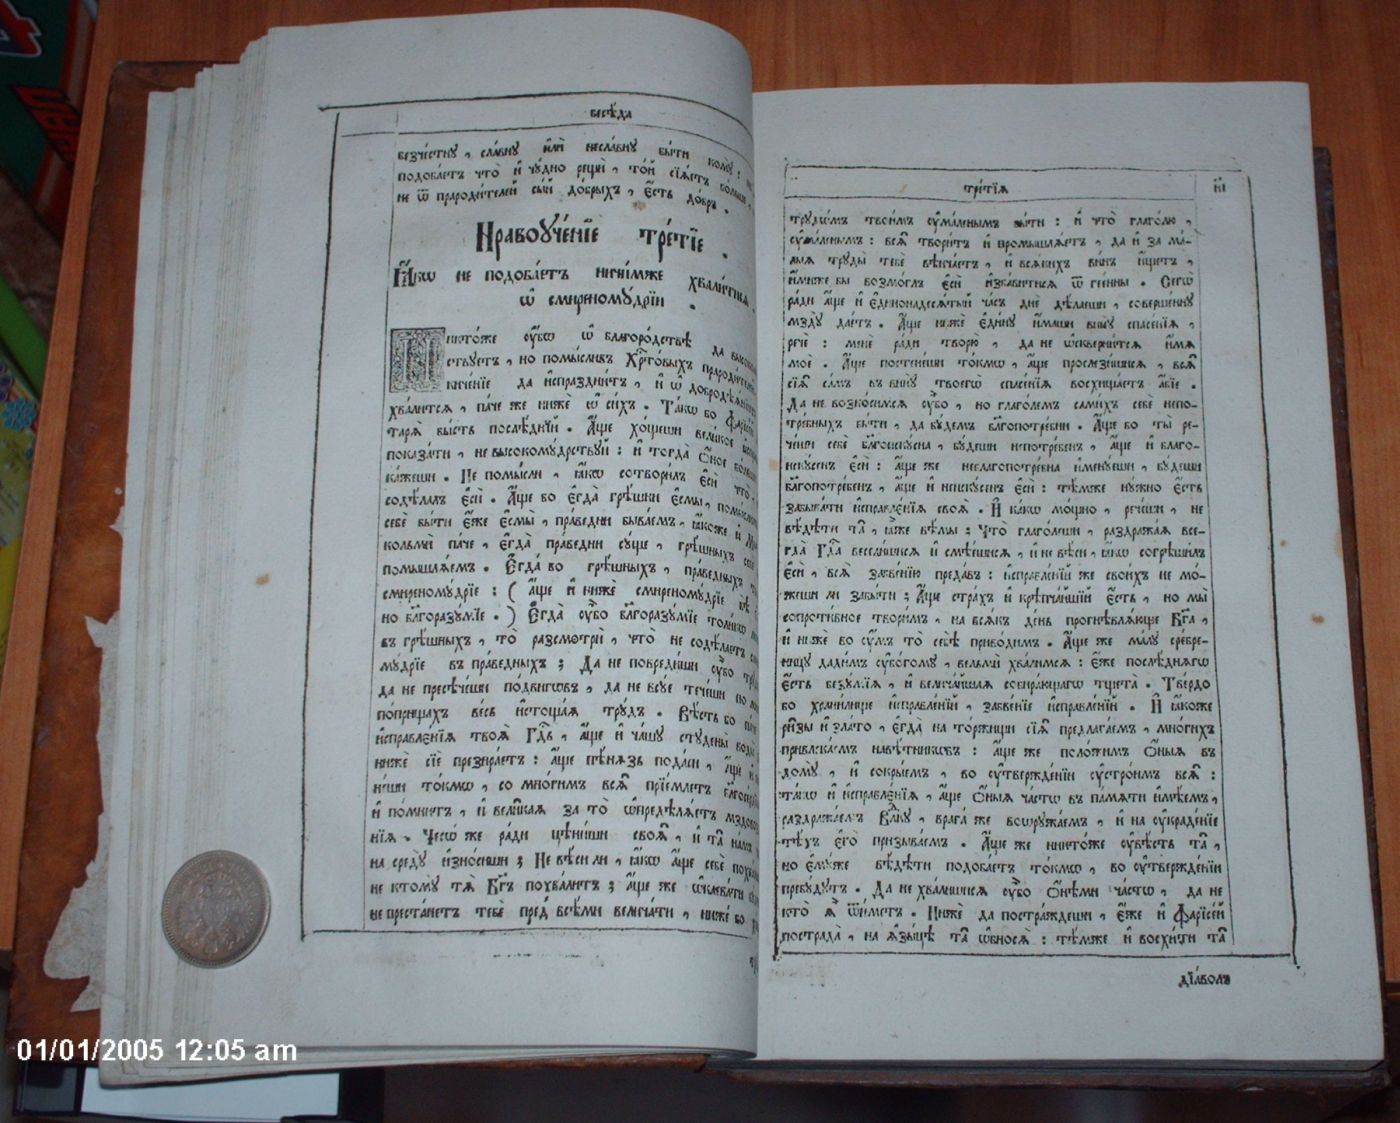 бесѣ́да
безче́стну, сла́вну и҆лѝ несла́вну бы́ти кому̀:
подоба́етъ что̀ и҆ чꙋ́дно рещѝ, то́й сїѧ́етъ бо́льши,
не ѿ прароди́телей сы́й до́брыхъ, є҆́сть до́бръ.
Нравоꙋче́нїе тре́тїе.
Ꙗ҆́кѡ не подоба́етъ ничи́мже хвали́тисѧ,
ѡ҆ смиреномꙋ́дрїи.
Никто́же ᲂу҆̀бѡ ѡ҆ благоро́дствѣ да высоко
ствꙋетъ, но помы́сливъ Хрⷭ҇то́выхъ прароди́тели
киче́нїе да и҆спраздни́тъ, и҆ ѡ҆ добродѣ́ѧнїи
хвали́тсѧ, па́че же нижѐ ѡ҆ си́хъ. Та́кѡ бо Фарїсе́й
тарѧ̀ бы́сть послѣ́днїй. А҆́ще хо́щеши вели́кое
показа́ти, не высокомꙋ́дрствꙋй: и҆ тогда̀ ѻ҆́ное бо́льше
ка́жеши. Не помы́сли, ꙗ҆́кѡ сотвори́лъ є҆сѝ что̀,
содѣ́лалъ є҆сѝ. А҆́ще бо є҆гда̀ грѣ́шни є҆смы̀,
себѐ бы́ти є҆́же є҆смы̀, пра́ведни быва́емъ, ꙗ҆́коже и҆
кольмѝ па́че, є҆гда̀ пра́ведни сꙋ́ще, грѣ́шныхъ себѐ
помышлѧ́емъ. Є҆гда́ бо грѣ́шныхъ, пра́ведныхъ
смиреномꙋ́дрїе: ( а҆́ще и҆ нижѐ смиреномꙋ́дрїе
но благоразꙋ́мїе. ) Є҆гда̀ ᲂу҆̀бо благоразꙋ́мїе толи́кѡ
въ грѣ́шныхъ, то̀ разсмотрѝ, что̀ не содѣ́лаетъ
мꙋ́дрїе въ пра́ведныхъ; Да не повреди́ши ᲂу҆̀бо
да не пресѣче́ши по́двигѡвъ, да не всꙋ́е тече́ши
по́прищахъ ве́сь и҆стоща́ѧ трꙋ́дъ. Вѣ́сть бо
и҆справле́нїѧ твоѧ̀ Гдⷭ҇ь, а҆́ще и҆ ча́шꙋ стꙋдены̀ воды̀
нижѐ сїѐ презира́етъ: а҆́ще пѣ́нѧзь пода́си,
ни́ши то́кмѡ, со мно́гимъ всѧ̑ прїе́млетъ
и҆ по́мнитъ, и҆ вели̑каѧ за то̀ ѡ҆предѣлѧ́етъ
нїѧ. Чесѡ́ же ра́ди цѣни́ши своѧ̑, и҆ та̑ на́мъ
на средꙋ̀ и҆зно́сиши; Не вѣ́си ли, ꙗ҆́кѡ а҆́ще себѐ
не ктомꙋ̀ тѧ̀ Бг҃ъ похва́литъ; а҆́ще же ѡ҆клевета́ти
не преста́нетъ тебѐ пред̾ всѣ́ми велича́ти, ниже́ бо
тре́тїѧ
н҃і
трꙋдѡ́мъ твои̑мъ ᲂу҆ма́лєнымъ бы́ти: и҆ что̀ глаго́лю,
ᲂу҆ма́лєнымъ: всѧ̑ твори́тъ и҆ промышлѧ́етъ, да и҆ за ма̑-
лыѧ трꙋды̀ тебѐ вѣнча́етъ, и҆ всѧ́кихъ ви́нъ и҆́щетъ,
и҆́миже бы возмо́глъ є҆сѝ и҆зба́витисѧ ѿ гее́нны. Сегѡ̀
ра́ди а҆́ще и҆ є҆диннона́десѧтый ча́съ днѐ дѣ́лаеши, соверше́ннꙋ
мздꙋ̀ дае́тъ. А҆́ще нижѐ є҆ди́нꙋ и҆́маши винꙋ̀ спасе́нїѧ,
речѐ: менѐ ра́ди творю̀, да не ѡ҆скверни́тсѧ и҆́мѧ
моѐ. А҆́ще постене́ши то́кмѡ, а҆́ще прослези́шисѧ, всѧ̑
сїѧ̑ са́мъ въ винꙋ̀ твоегѡ̀ спасе́нїѧ восхища́етъ а҆́бїе.
Да не возно́симсѧ ᲂу҆̀бо, но глаго́лемъ сами́хъ себѐ непо-
тре́бныхъ бы́ти, да бꙋ́демъ благопотре́бни. А҆́ще бо ты̀ ре-
че́ши себѐ благоискꙋ́сна, бꙋ́деши непотре́бенъ, а҆́ще и҆ благо-
искꙋ́сенъ є҆сѝ: а҆́ще же неблагопотре́бна и҆менꙋ́еши, бꙋ́деши
благопотре́бенъ, а҆́ще и҆ неискꙋ́сенъ є҆сѝ: тѣ́мже нꙋ́жно є҆́сть
забыва́ти и҆справлє́нїѧ своѧ̑. И҆ ка́кѡ мо́щно, рече́ши, не
вѣ́дѣти та̑, ꙗ҆̀же вѣ́мы; Что̀ глаго́леши, раздража́ѧ все-
гда̀ Гдⷭ҇а весели́шисѧ и҆ смѣе́шисѧ, и҆ не вѣ́си, ꙗ҆́кѡ согрѣши́лъ
є҆сѝ, всѧ̑ забве́нїю преда́въ: и҆справле́нїй же свои́хъ не мо́-
жеши ли забы́ти; А҆́ще стра́хъ и҆ крѣпча́йшїй є҆́сть, но мы̀
сопроти́вное твори́мъ, на всѧ́къ де́нь прогнѣвлѧ́юще Бг҃а,
и҆ нижѐ во ᲂу҆́мъ то̀ себѣ̀ приво́димъ. А҆́ще же ма́лꙋ сре́бре-
ницꙋ дади́мъ ᲂу҆бо́гомꙋ, вельмѝ хва́лимсѧ: є҆́же послѣ́днѧгѡ
є҆́сть безꙋ́мїѧ, и҆ велича́йшаѧ собира́ющагѡ тщета̀. Тве́рдо
бо храни́лище и҆справле́нїй, забве́нїе и҆справле́нїй. И҆ ꙗ҆́коже
ри̑зы и҆ зла́то, є҆гда̀ на то́ржищи сїѧ̑ предлага́емъ, мно́гихъ
привлека́емъ навѣ́тникѡвъ: а҆́ще же поло́жимъ ѻ҆́ныѧ въ
домꙋ̀, и҆ сокры́емъ, во ᲂу҆твержде́нїи ᲂу҆стро́имъ всѧ̑:
та́кѡ и҆ и҆справлє́нїѧ, а҆́ще ѻ҆́ныѧ ча́стѡ въ па́мѧти и҆мѣ́емъ,
раздража́емъ Влⷣкꙋ, врага́ же воѡрꙋжа́емъ, и҆ на ᲂу҆краде́нїе
тѣ́хъ є҆го̀ призыва́емъ. А҆́ще же никто́же ᲂу҆вѣ́сть та̑,
но є҆мꙋ́же вѣ́дѣти подоба́етъ то́кмѡ, во ᲂу҆твержде́нїи
пребꙋ́дꙋтъ. Да не хвали́шисѧ ᲂу҆̀бо ѻ҆́ными ча́стѡ, да не
кто̀ ѧ҆̀ ѿи́метъ. Нижѐ да постра́ждеши, є҆́же и҆ Фарїсе́й
пострада̀, на ѧ҆зы́цѣ та̑ ѡ҆бносѧ̀: тѣ́мже и҆ восхи́ти та̑
дїа́волъ